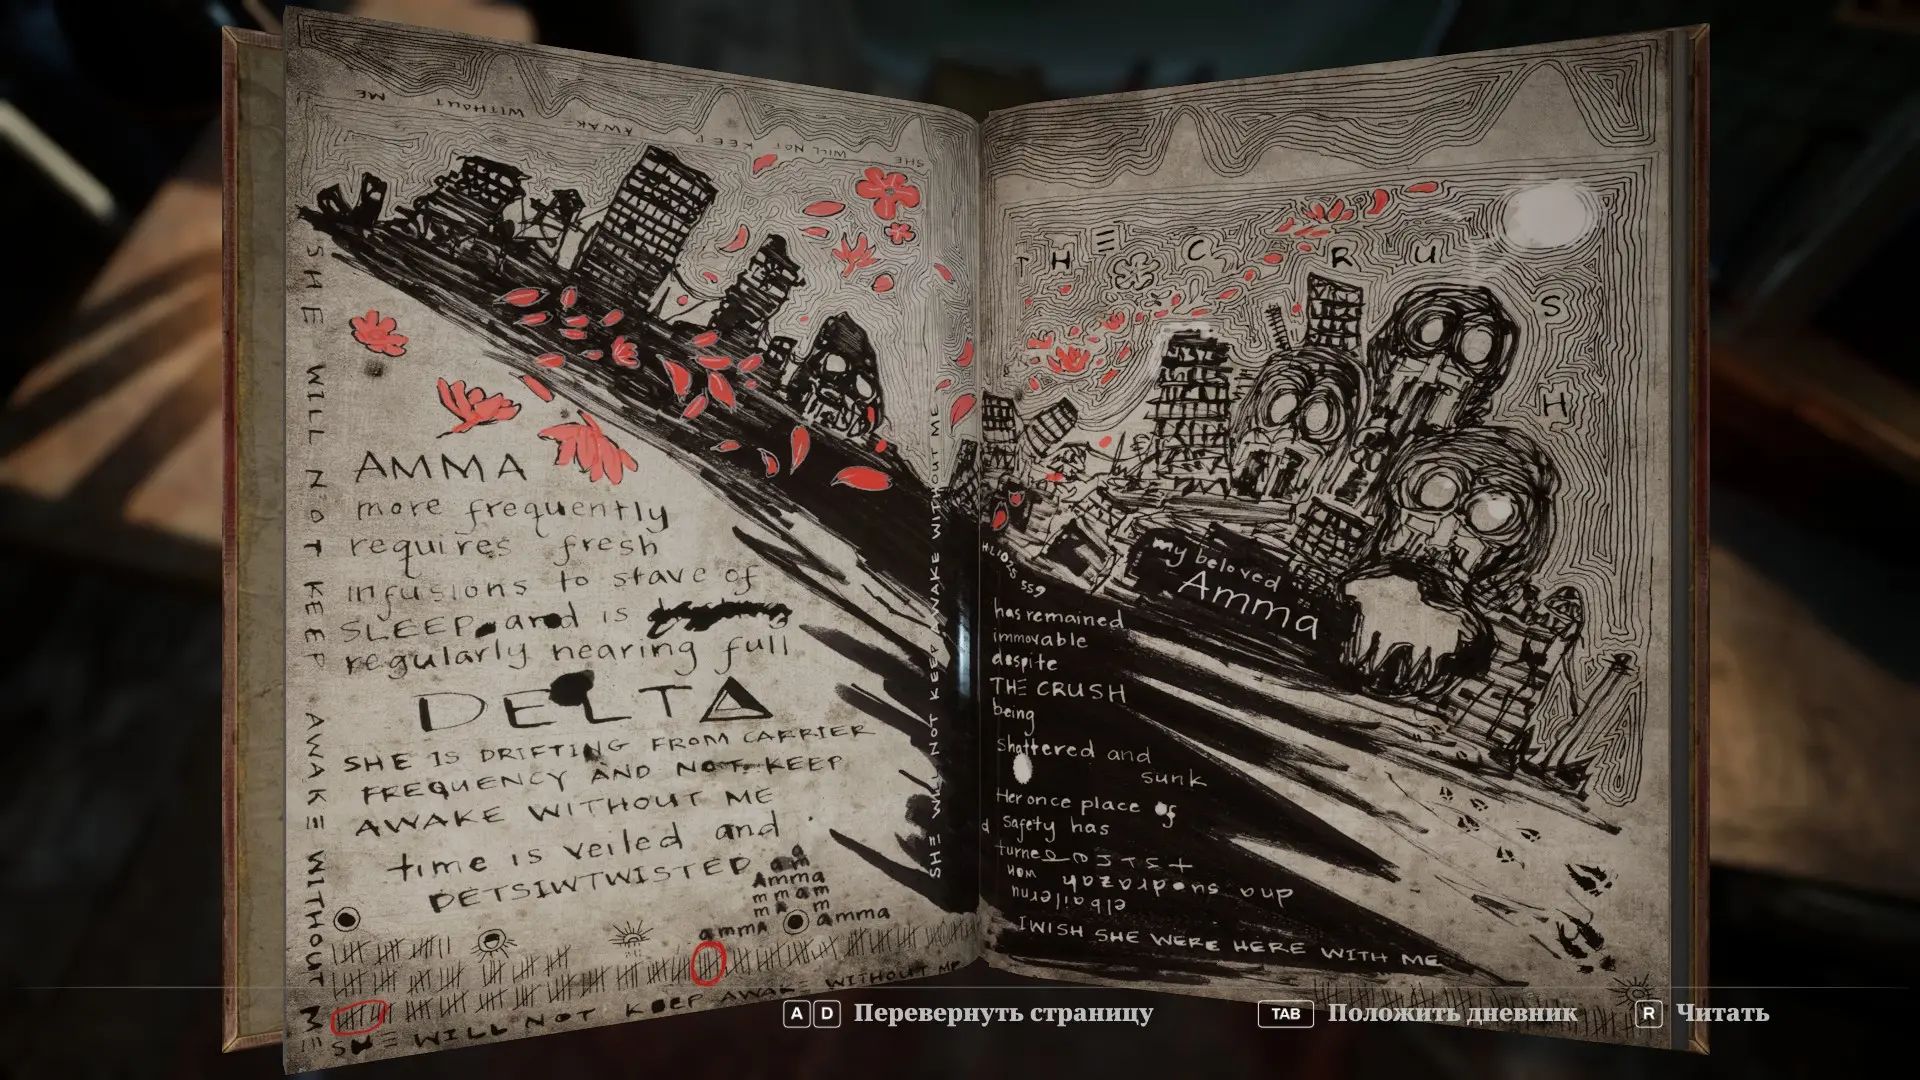 SHE WILL NOT KEEP AWAK WITHOUT ME
SHE WILL NOT KEEP AWAKE WITHOUT ME
AMMA
more frequently
requires fresh
infusions to stave of
SLEEP and is
regularly nearing full
DELTA
SHE IS DRIFTING FROM CARRIER
FREQUENCY AND NOT KEEP
AWAKE WITHOUT ME
time is veiled and
DETSIWTWISTED
a
am
Amma
mmam
m m
amma
amma
SHE WILL NOT KEEP AWAKE WITHOUT ME
SHE WILL NOT KEEP AWAKE WITHOUT ME
THE CRUSH
my beloved
Amma
HL1025 559
has remained
immovable
despite
THE CRUSH
being
shattered and
sunk
Her once place of
safety has
turned
I WISH SHE WERE HERE WITH ME
A D Перевернуть страницу
TAB Положить дневник
R Читать